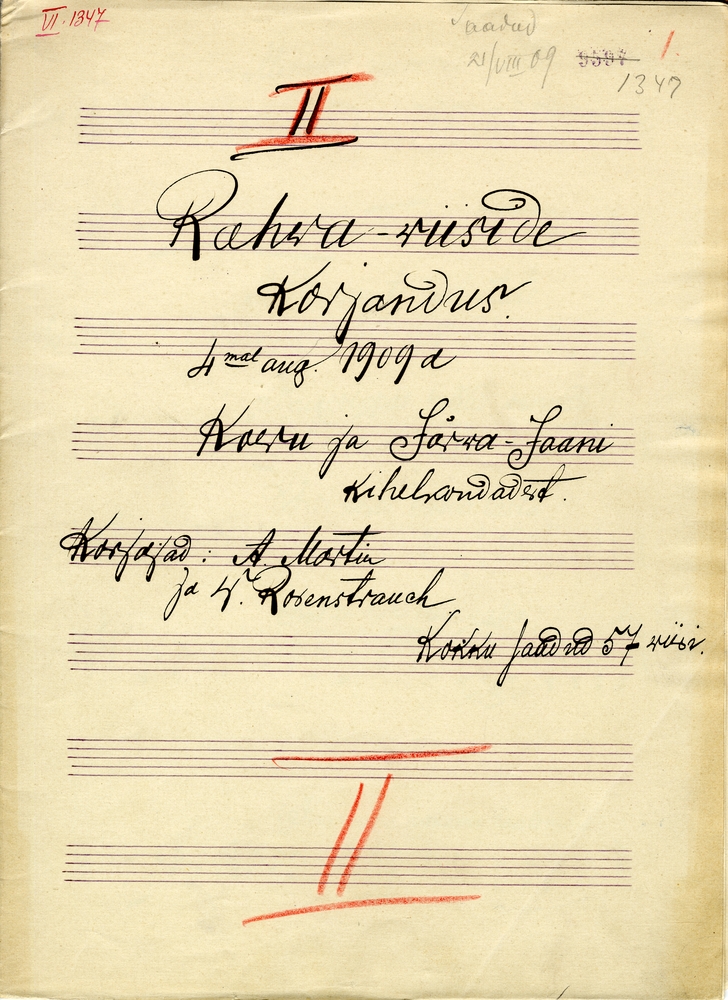 VI. 1347
Saadud
21/VIII 09
1347
II
Rahwa-wiiside
Korjandus.
4mal aug. 1909 a
Koeru ja Järwa-Jaani
kihelkondadest.
Korjajad: A Martin
ja W. Rosenstrauch
Kokku saadud 57 wiisi.
II